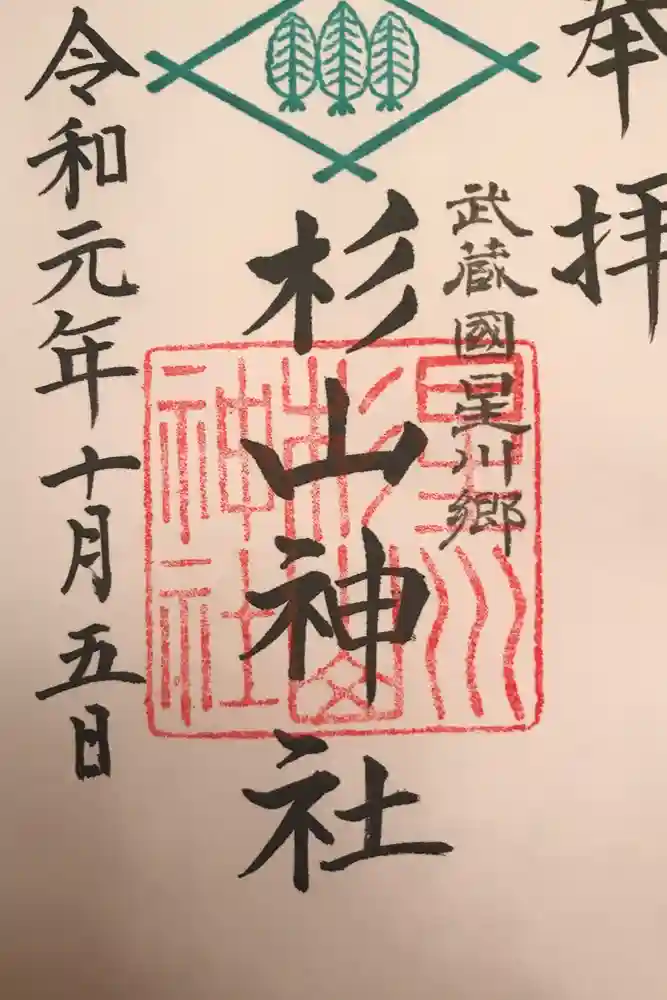 奉拝
武蔵國星川郷
杉山神社
星川
杉山
神社
令和元年十月五日